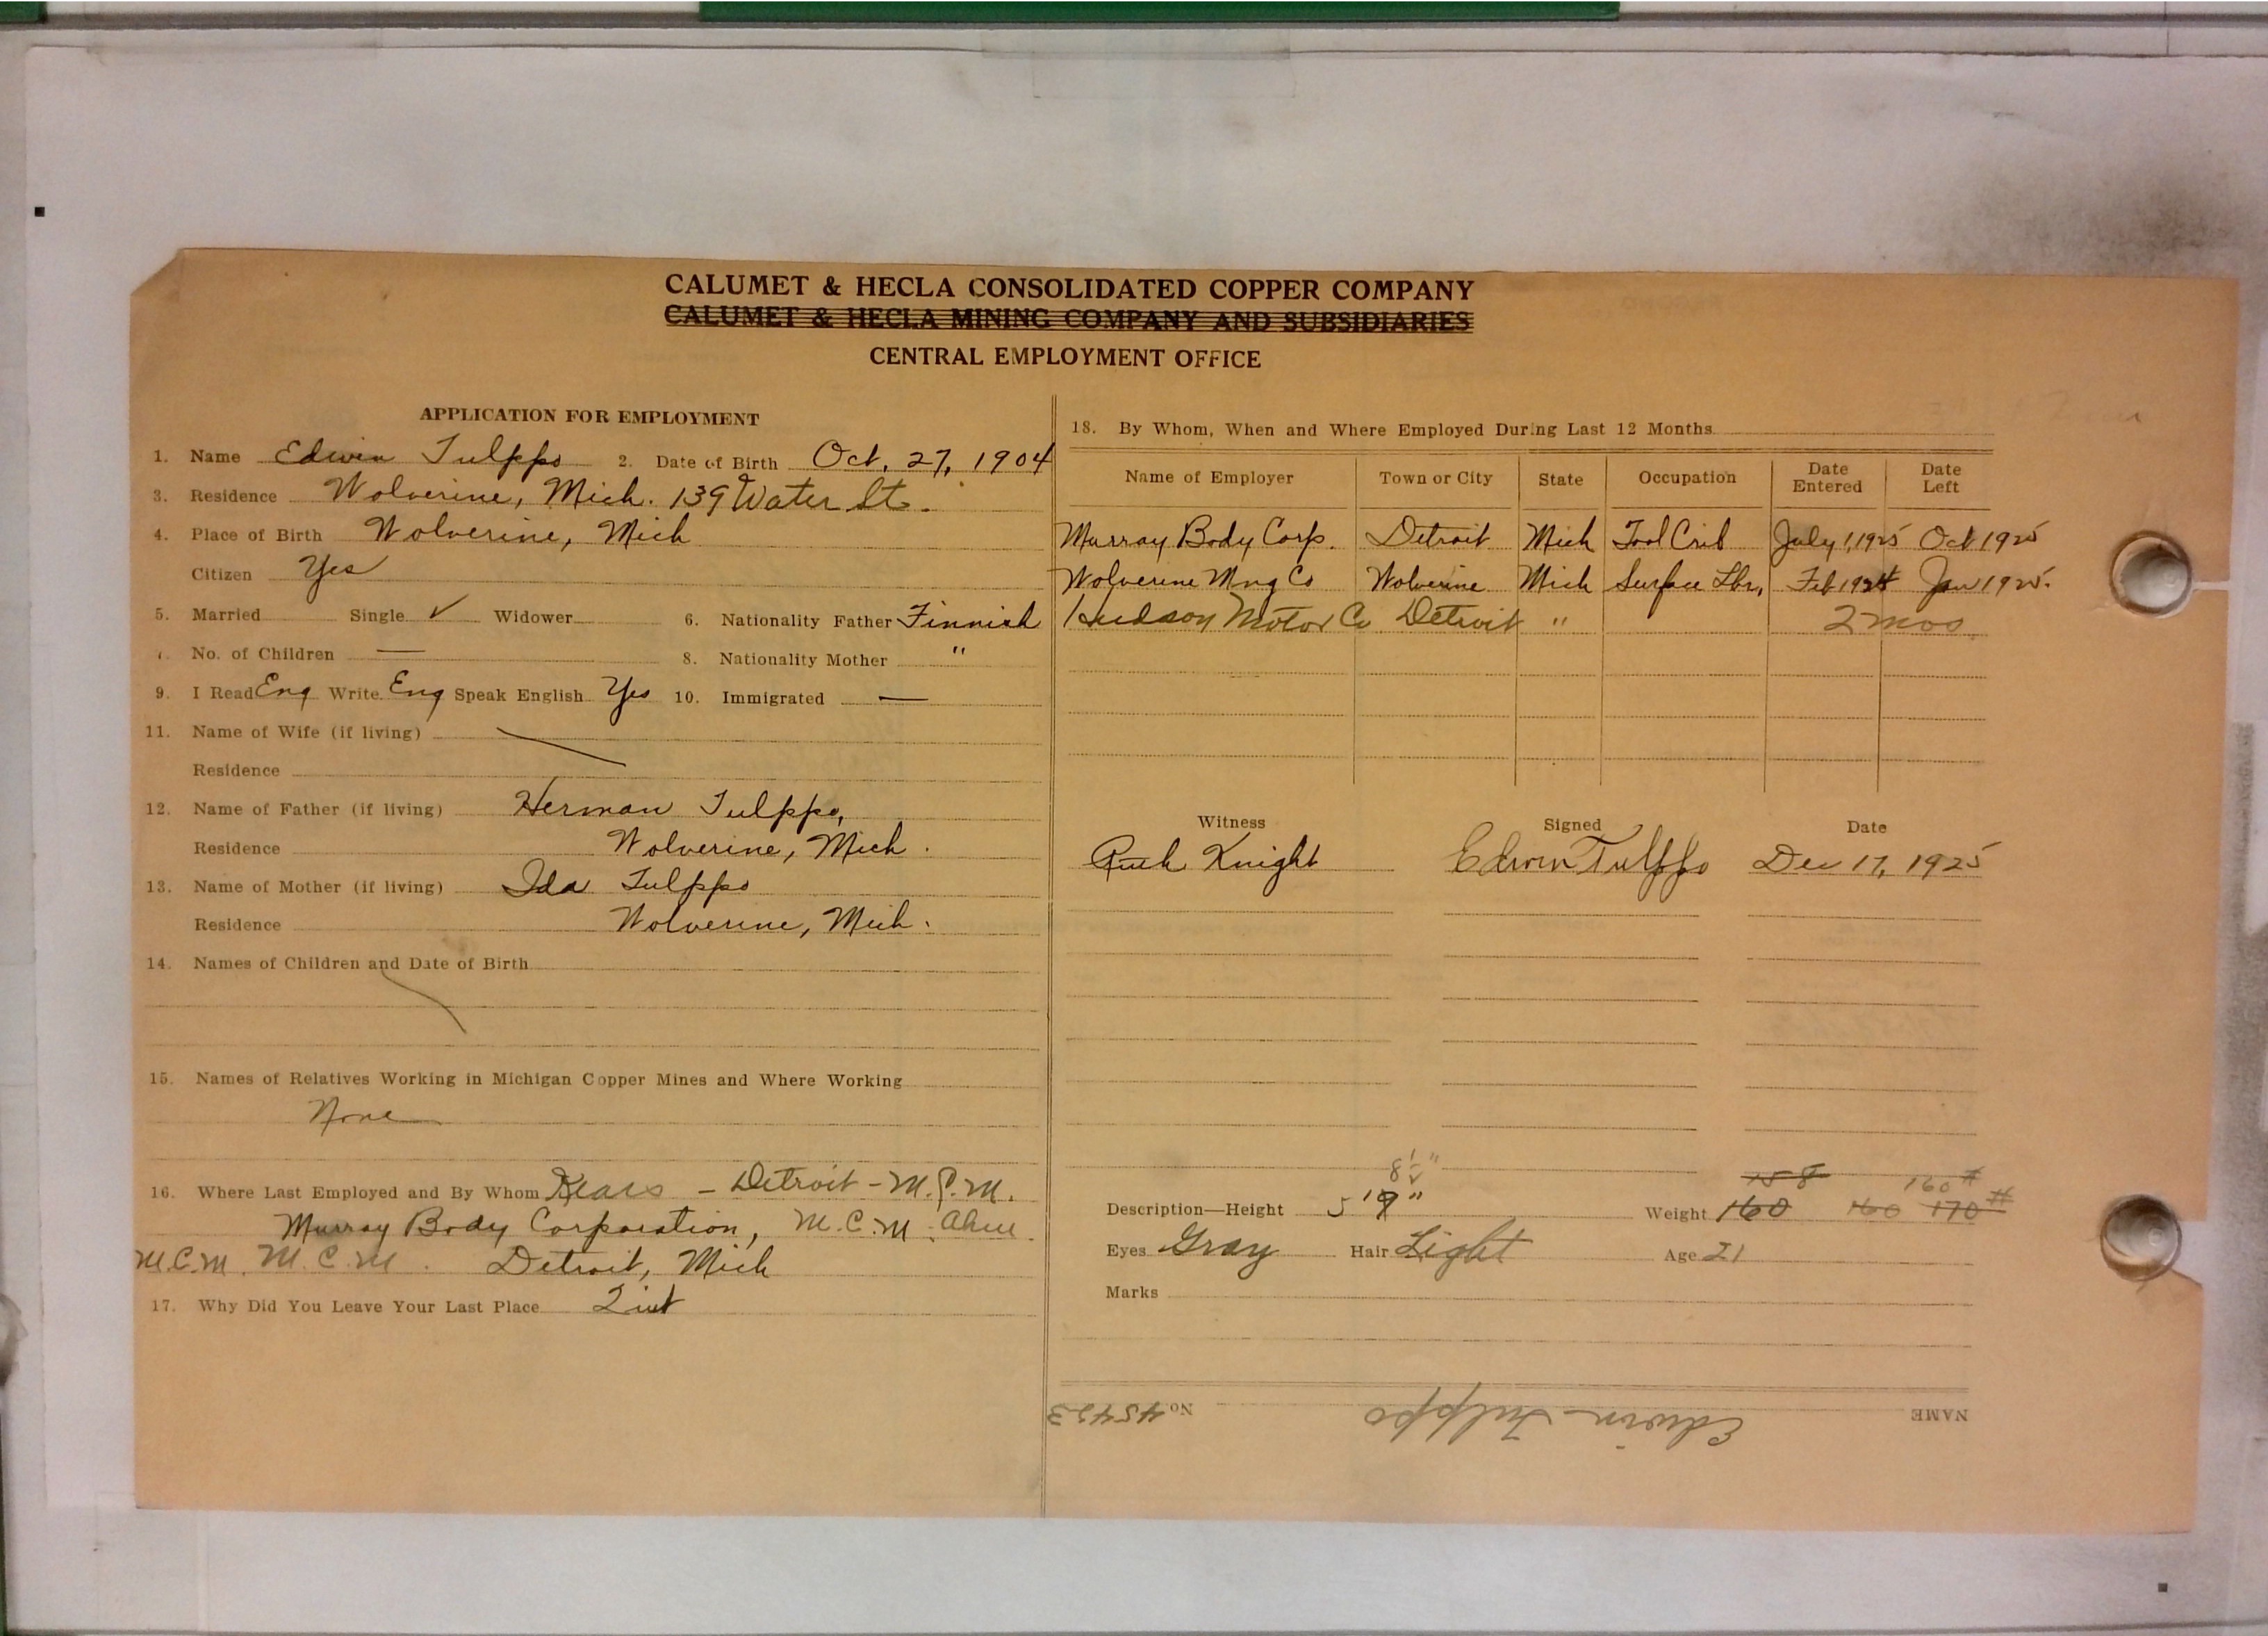 CALUMET & HECLA CONSOLIDATED COPPER COMPANY
CALUMET & HECLA MINING COMPANY AND SUBSIDIARIES
CENTRAL EMPLOYMENT OFFICE
APPLICATION FOR EMPLOYMENT
1. Name Edwin Tulppo 2. Date of Birth Oct. 27, 1904
3. Residence Wolverine, Mich. 139 Water St.
4. Place of Birth Wolverine, Mich
Citizen Yes
5. Married Single ✓ Widower 6. Nationality Father Finnish
7. No. of Children — 8. Nationality Mother "
9. I Read Eng Write Eng Speak English Yes 10. Immigrated —
11. Name of Wife (if living)
Residence
12. Name of Father (if living) Herman Tulppo,
Residence Wolverine, Mich.
13. Name of Mother (if living) Ida Tulppo
Residence Wolverine, Mich.
14. Names of Children and Date of Birth
15. Names of Relatives Working in Michigan Copper Mines and Where Working
None
16. Where Last Employed and By Whom - Detroit - M.C.M.
Murray Body Corporation, M.C.M.
M.C.M. M.C.M. Detroit, Mich
17. Why Did You Leave Your Last Place Quit
18. By Whom, When and Where Employed During Last 12 Months
Name of Employer Town or City State Occupation Date Entered Date Left
Murray Body Corp. Detroit Mich Tool Crib July 1, 1925 Oct 1925
Wolverine Mng Co Wolverine Mich Surface Lbr, Feb 1924 Jan 1925.
Hudson Motor Co Detroit " 2 mos.
Witness Signed Date
Ruth Knight Edwin Tulppo Dec 17, 1925
8 1/2" 158 160#
Description—Height 5' 9" Weight 160 160 170#
Eyes Gray Hair Light Age 21
Marks
NAME Edwin Tulppo No 45423